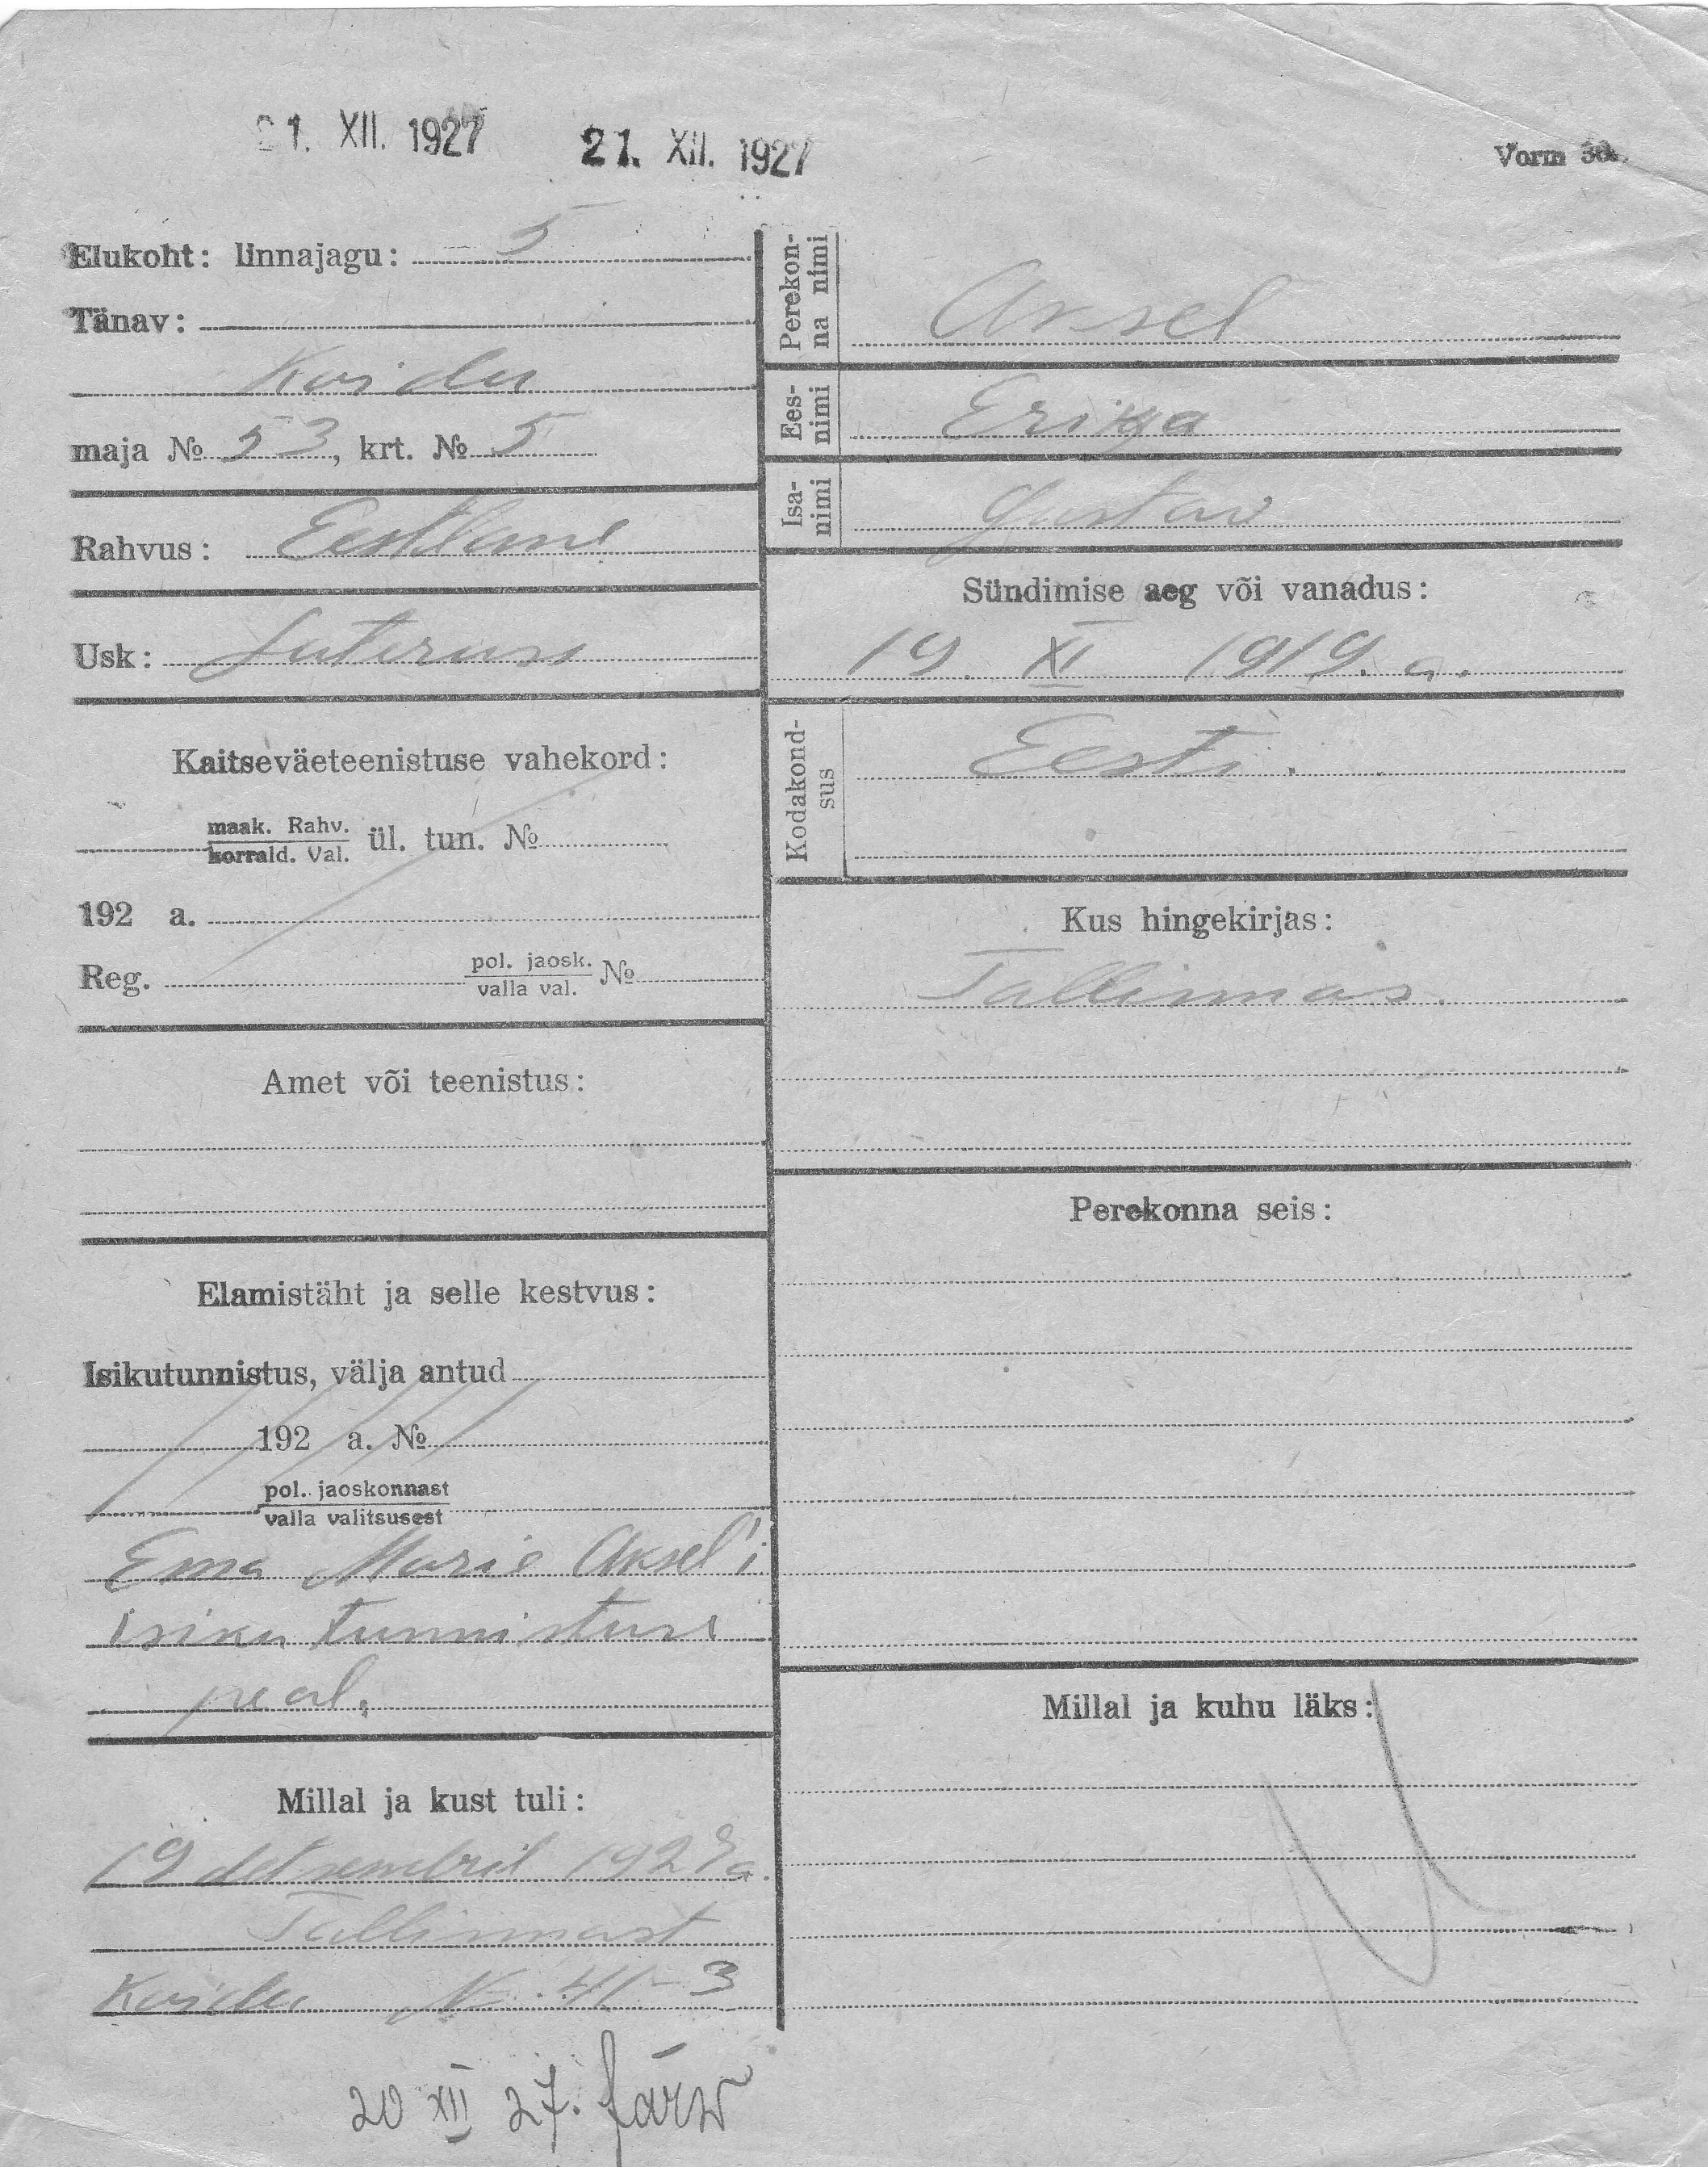 21. XII. 1927 21. XII. 1927
Vorm
Elukoht: linnajagu: 5
Tänav:
Koidu
maja № 53, krt. № 5
Rahvus: Eestlane
Usk: Luterus
Kaitseväeteenistuse vahekord:
maak. Rahv.
korrald. Val. ül. tun. №
192 a.
Reg. pol. jaosk.
valla val. №
Amet või teenistus:
Elamistäht ja selle kestvus:
Isikutunnistus, välja antud
192 a. №
pol. jaoskonnast
valla valitsusest
Ema Marie Aksel'i
isiku tunnistuse
peal.
Millal ja kust tuli:
19 detsembril 1927 a.
Tallinnast
Koidu № 41-3
20 XII 27.
Perekon-
na nimi Aksel
Ees-
nimi Erika
Isa-
nimi Gustav
Sündimise aeg või vanadus:
19. XI 1919. a.
Kodakond-
sus Eesti.
Kus hingekirjas:
Tallinnas.
Perekonna seis:
Millal ja kuhu läks: